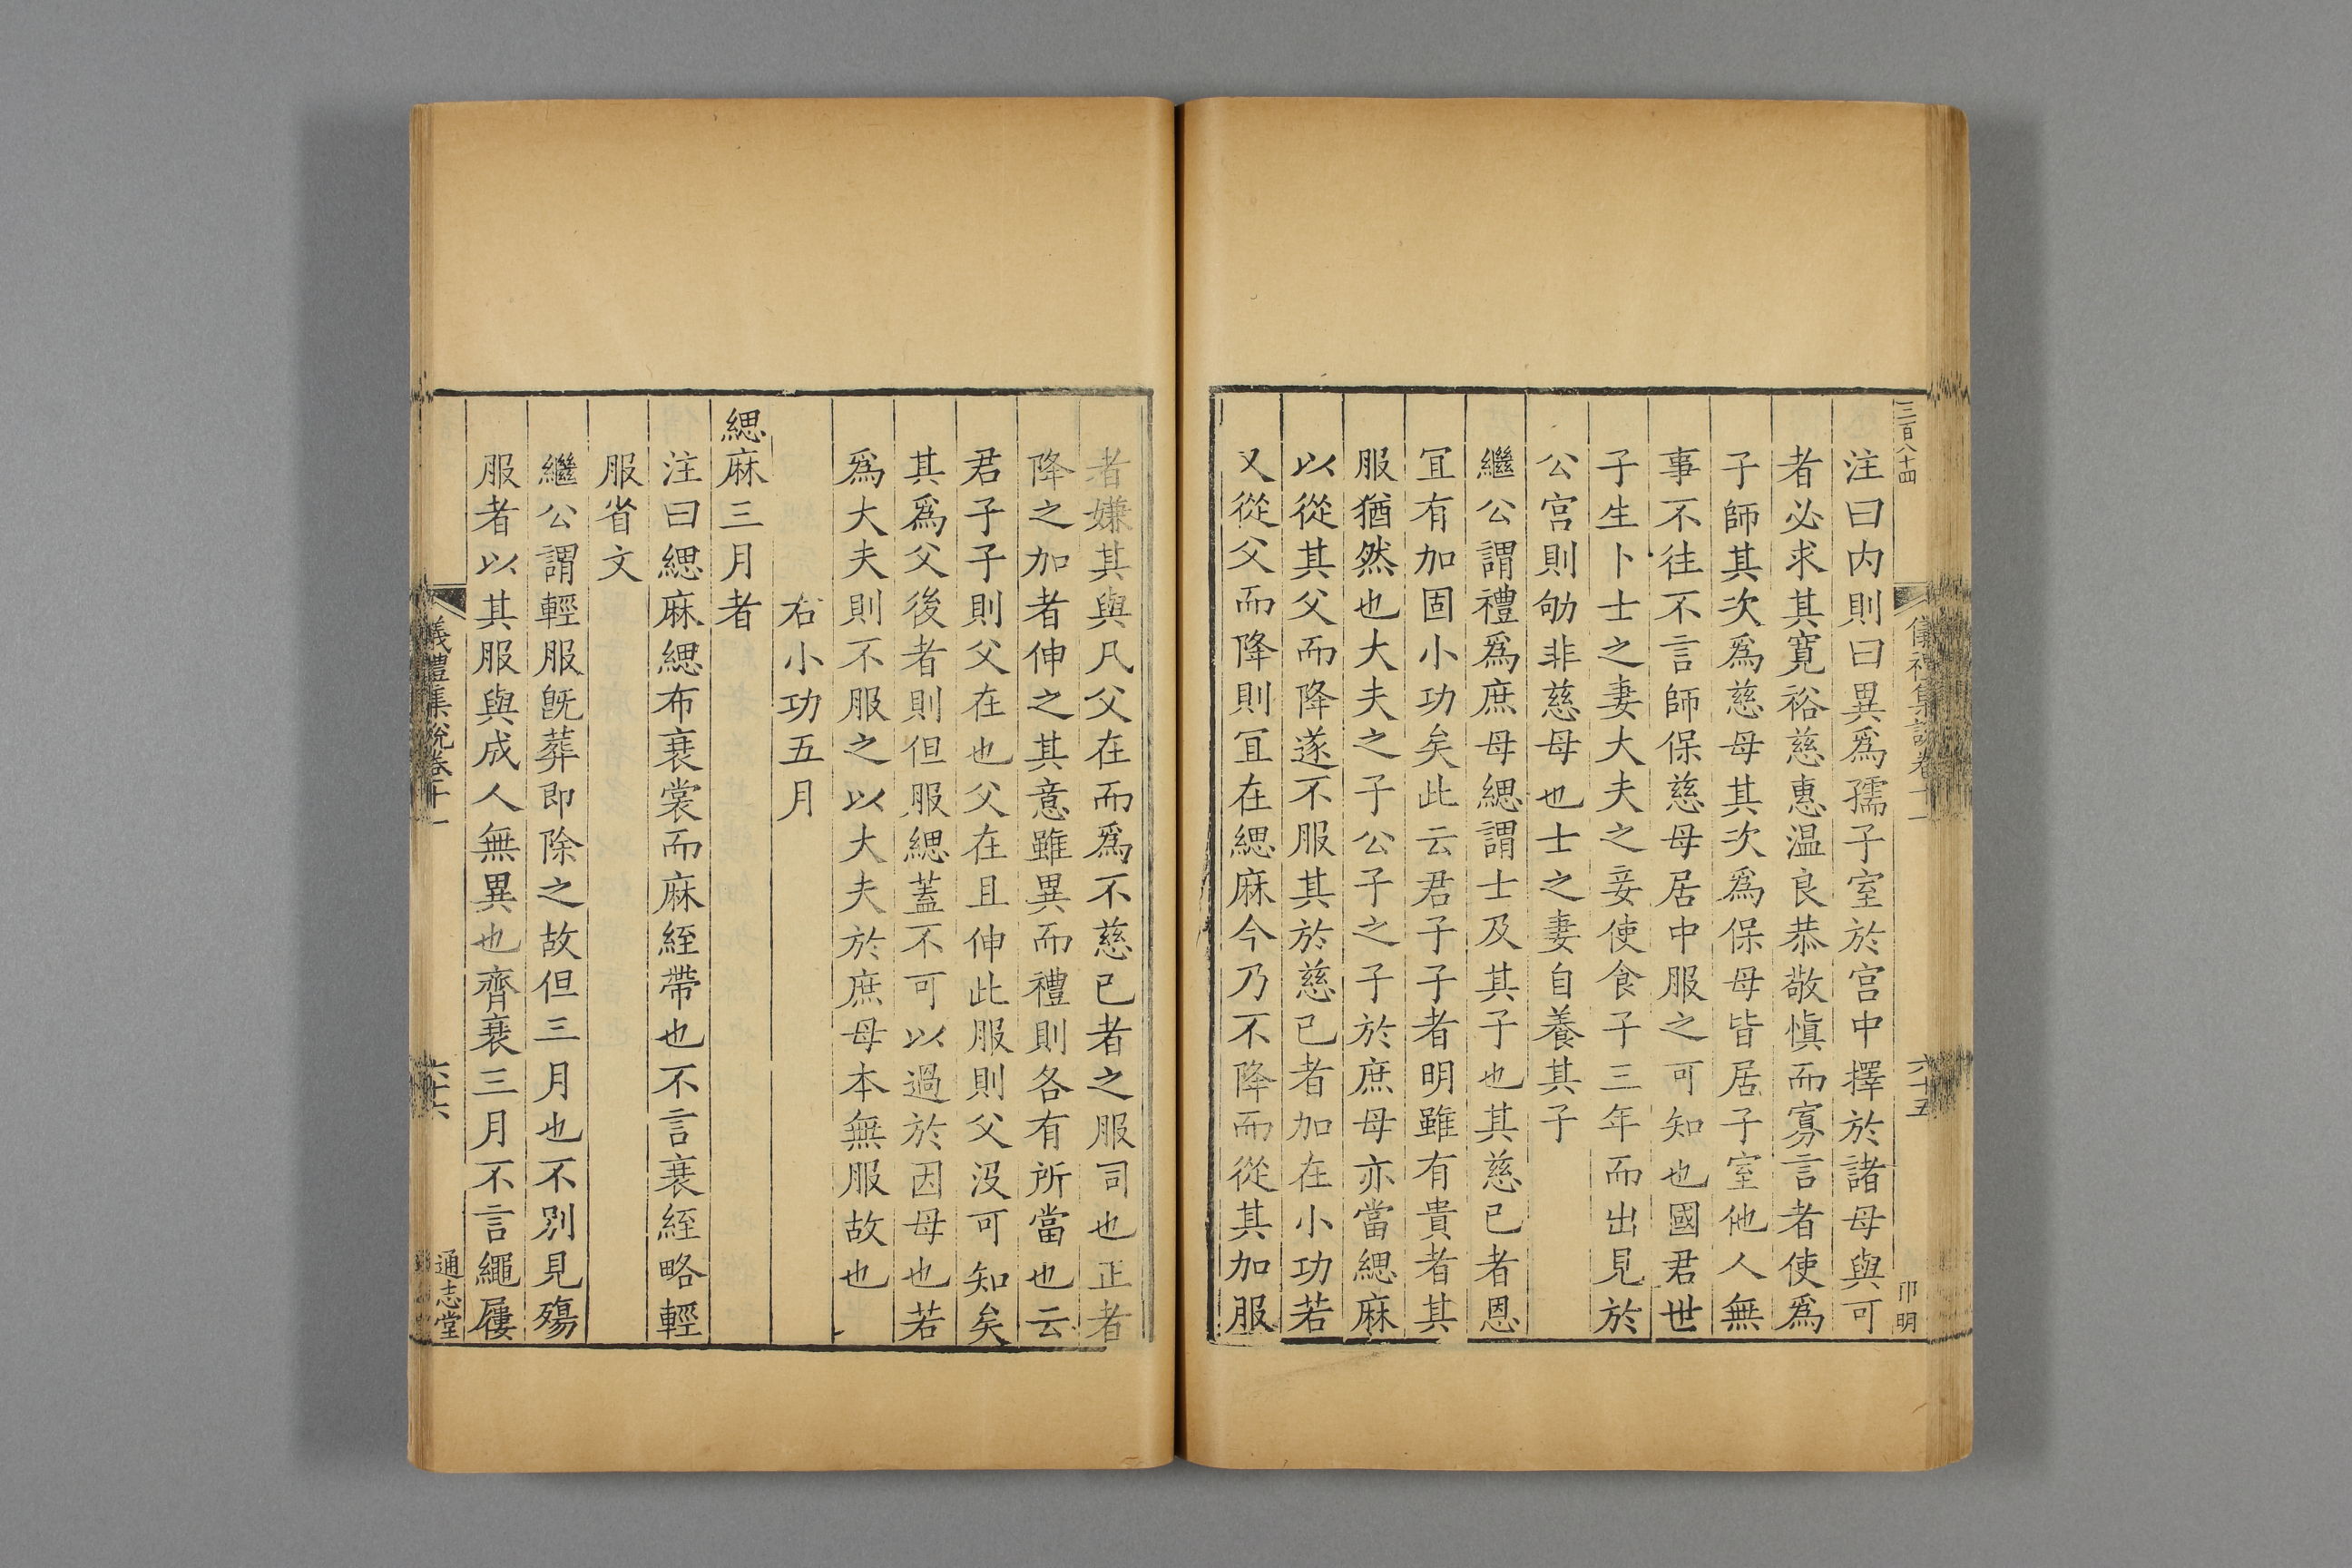 三百八十四
儀禮集說卷十一
六十五
卩明
注曰内則曰異爲孺子室於宮中擇於諸母與可
者必求其寛裕慈惠温良恭敬愼而寡言者使爲
子師其次爲慈母其次爲保母皆居子室他人無
事不往不言師保慈母居中服之可知也國君世
子生卜士之妻大夫之妾使食子三年而出見於
公宮則劬非慈母也士之妻自養其子
繼公謂禮爲庶母緦謂士及其子也其慈已者恩
冝有加固小功矣此云君子子者明雖有貴者其
服猶然也大夫之子公子之子於庶母亦當緦麻
以從其父而降遂不服其於慈已者加在小功若
又從父而降則冝在緦麻今乃不降而從其加服
者嫌其與凡父在而爲不慈已者之服司也正者
降之加者伸之其意雖異而禮則各有所當也云
君子子則父在也父在且伸此服則父沒可知矣
其爲父後者則但服緦蓋不可以過於因母也若
爲大夫則不服之以大夫於庶母本無服故也
右小功五月
緦麻三月者
注曰緦麻緦布衰裳而麻絰帶也不言衰絰略輕
服省文
繼公謂輕服旣葬即除之故但三月也不別見殤
服者以其服與成人無異也齊衰三月不言繩屨
儀禮集說卷十一
六十六
通志堂